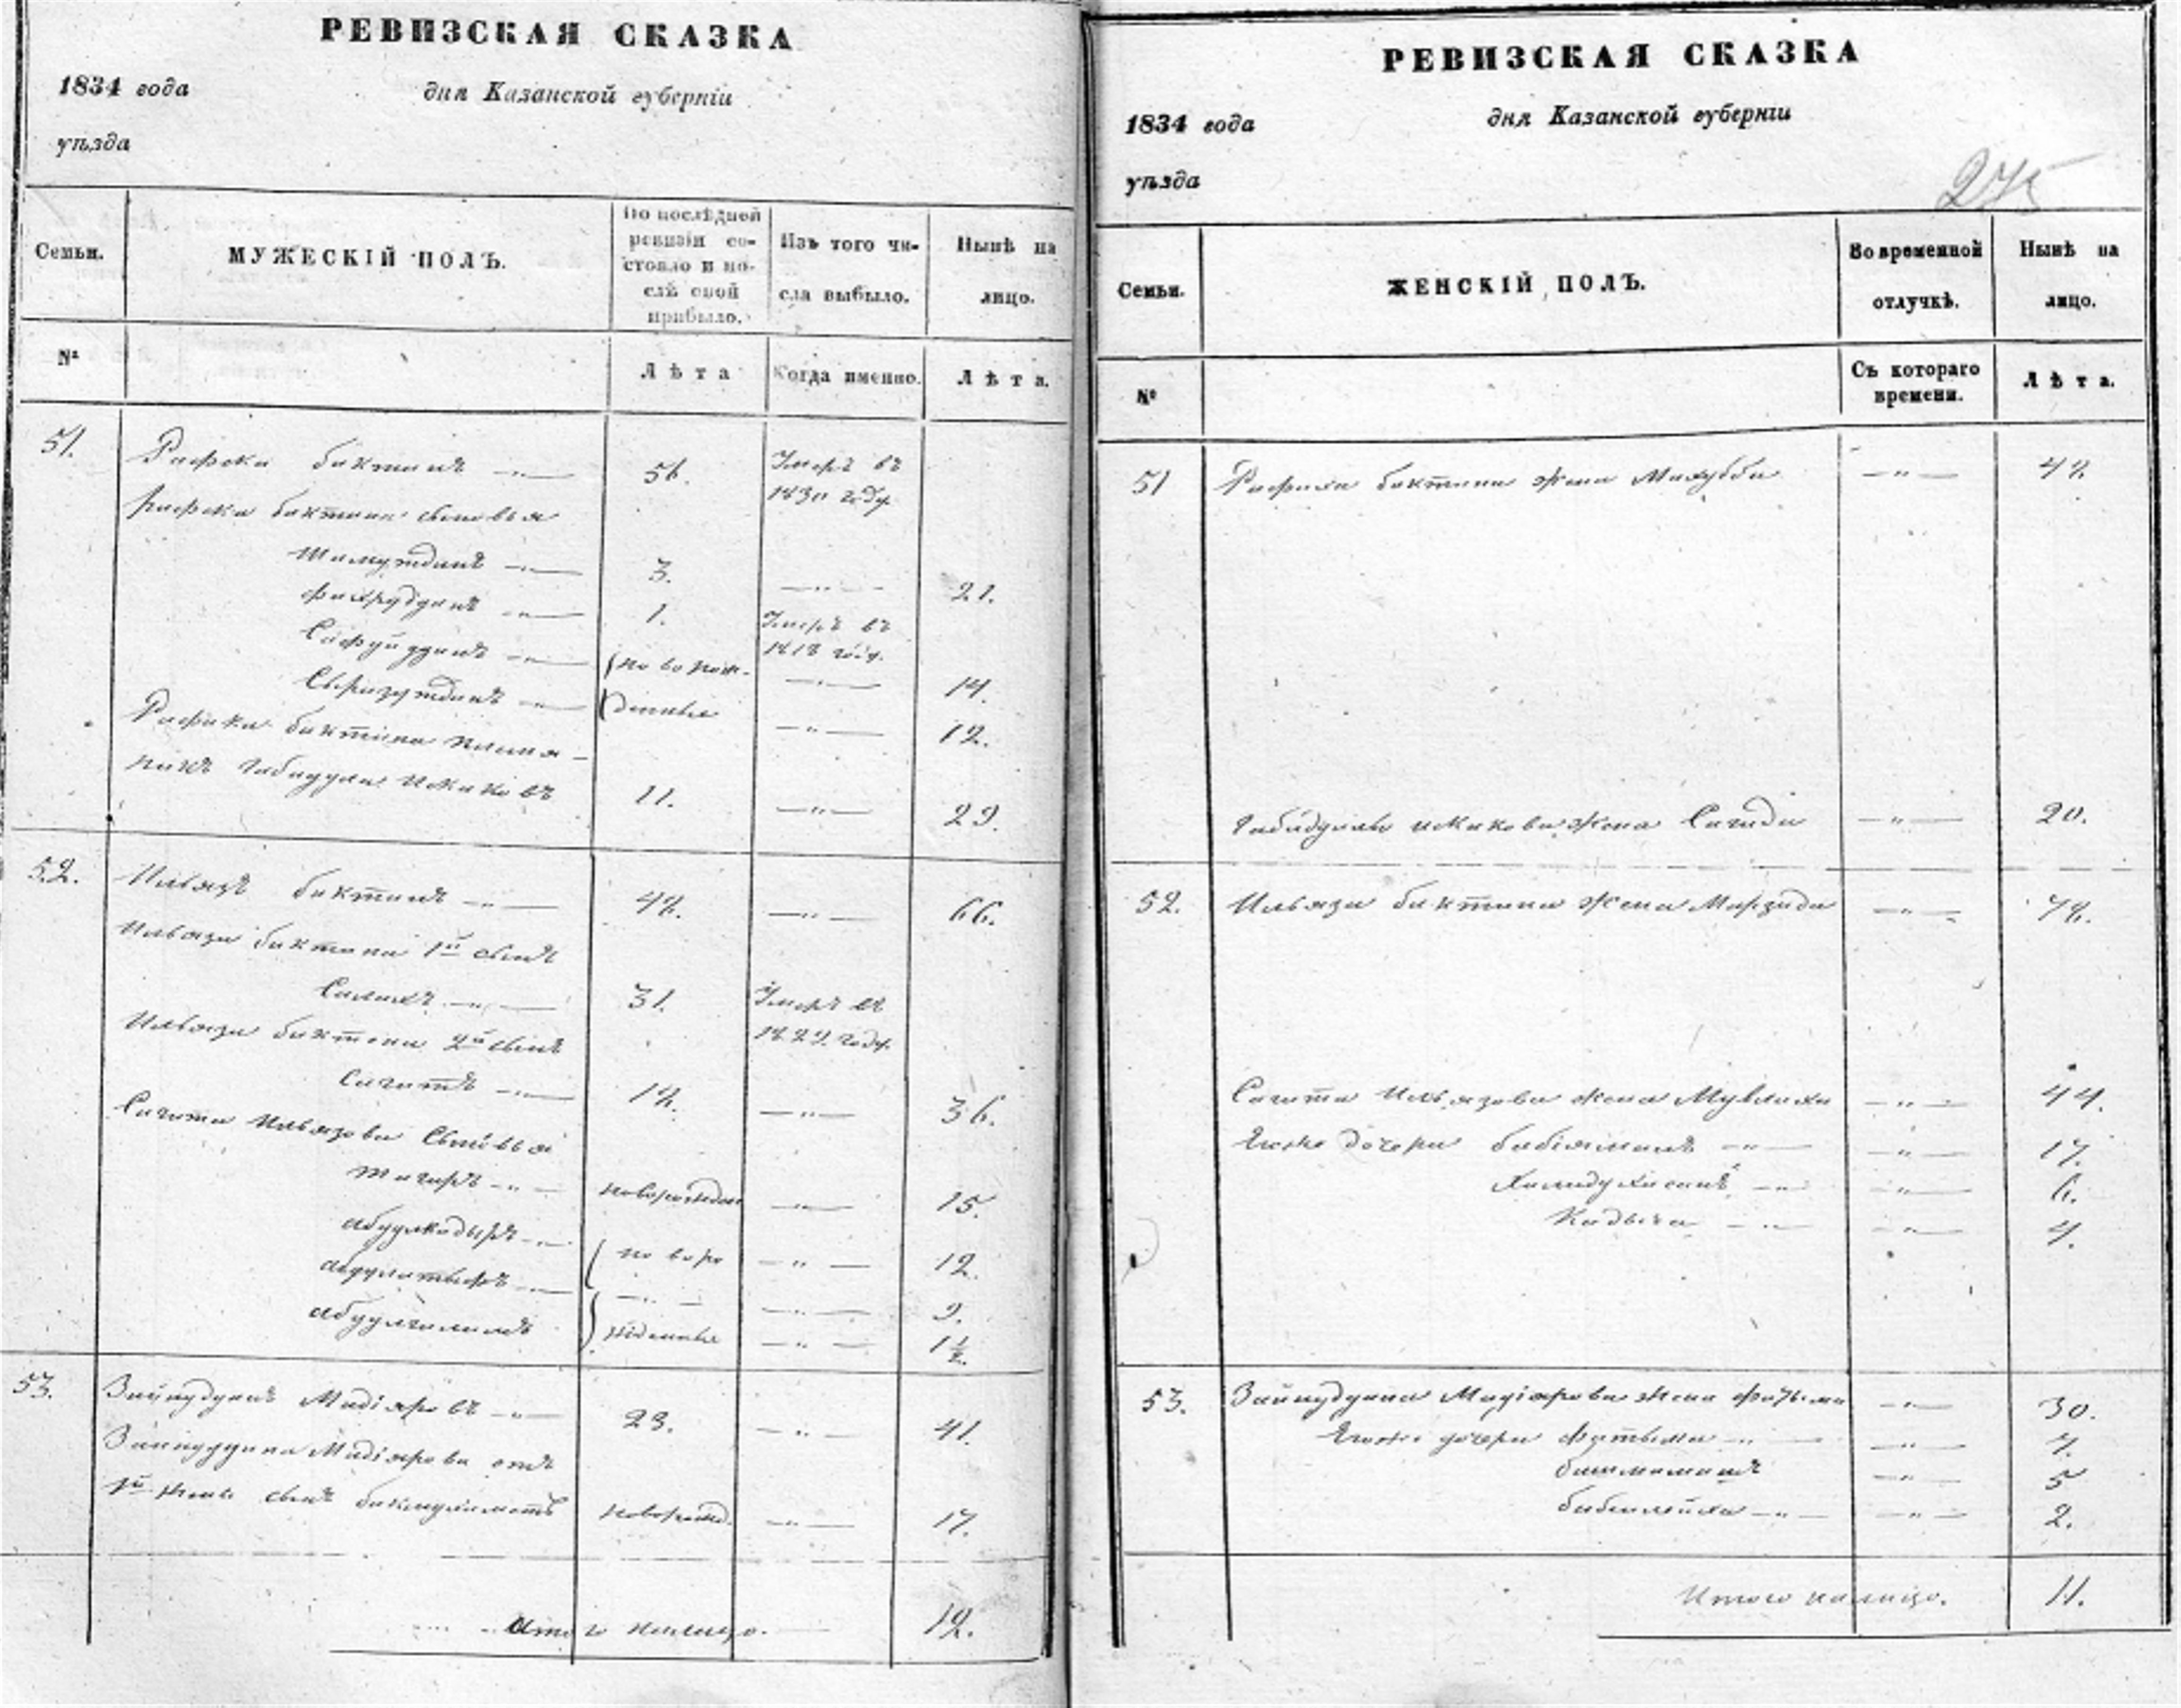 РЕВИЗСКАЯ СКАЗКА
1834 года дня Казанской губерніи
уѣзда
Семьи.
МУЖЕСКІЙ ПОЛЪ.
По послѣдней ревизіи состояло и послѣ оной прибыло.
Изъ того числа выбыло.
Нынѣ на лицо.
№
Лѣта
Когда именно.
Лѣта.
51. Рафика биктинъ — 56. Умеръ въ
1830 году.
Рафика биктина сыновья
3. — 21.
1. Умеръ въ
1818 году.
Сайфуйддинъ — новорож- — 14.
денные — 12.
Рафика биктина племя-
никъ Габидулла Искаковъ 11. — 29.
52. Ильязъ биктинъ — 48. — 66.
Ильяза биктина 1й сынъ
Салихъ — 31. Умеръ въ
1829 году.
Ильяза биктина 2й сынъ
Сагитъ — 18. — 36.
Сагита Ильязова Сыновья
Тагиръ — новорожден — 15.
абдулкадыръ — новоро — 12.
— 9.
абдулгалимъ жденные — 1½.
53. Зайнуддинъ Мадіяровъ — 23. — 41.
Зайнуддина Мадіярова отъ
1й жены сынъ бикмухаметъ новорожд. — 17.
Итого налицо. 12.
РЕВИЗСКАЯ СКАЗКА
1834 года дня Казанской губерніи
уѣзда
275
Семьи.
ЖЕНСКІЙ ПОЛЪ.
Во временной отлучкѣ.
Нынѣ на лицо.
№
Съ котораго времени.
Лѣта.
51 Рафика биктина жена Махубба — 48
Габидуллы искакова жена Сагида — 20.
52. Ильяза биктина жена Марзида —
Сагита Ильязова жена Мувлиха — 44.
Егоже дочери бибіямалъ — 17.
— 6.
Кадыча — 4.
53. Зайнуддина Мадіярова жена — 30.
Егоже дочери Фатыма — 7.
— 5
— 2.
Итого налицо. 11.